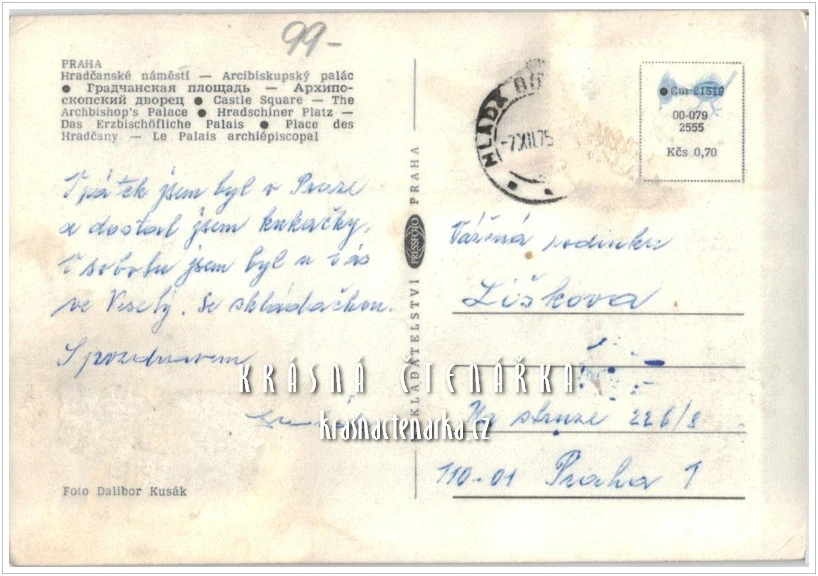 99-
PRAHA
Hradčanské náměstí — Arcibiskupský palác
● Градчанская площадь — Архипо-
скопский дворец ● Castle Square — The
Archbishop's Palace ● Hradschiner Platz —
Das Erzbischöfliche Palais ● Place des
Hradčany — Le Palais archiépiscopal
V pátek jsem byl v Praze
a dostal jsem kukačky.
V sobotu jsem byl u vás
ve Veselý. Se skládačkou.
S pozdravem
Foto Dalibor Kusák
KLADATELSTVÍ PRESSFOTO PRAHA
MLADÁ BO
-7.XII.75
00-079
2555
Kčs 0,70
Vážená rodinku
Liškova
Na struze 226/
110-01 Praha 1
KRÁSNÁ ČTENÁŘKA
krasnactenarka.cz